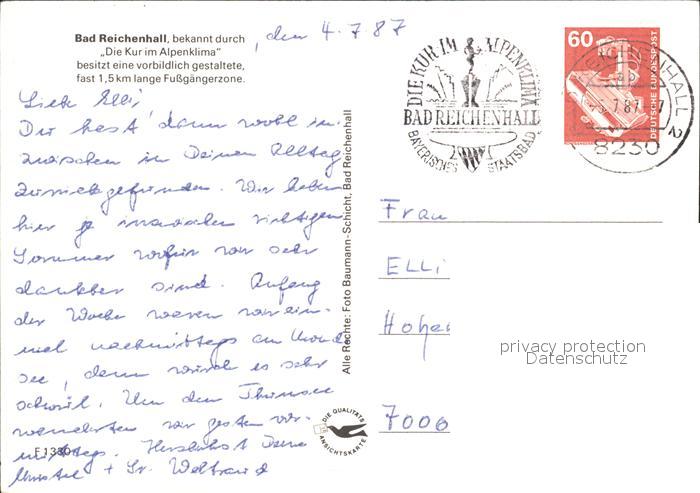 Bad Reichenhall, bekannt durch
„Die Kur im Alpenklima"
besitzt eine vorbildlich gestaltete,
fast 1,5 km lange Fußgängerzone.
, den 4.7.87
Liebe Elli,
Du hast dann wohl in-
zwischen in Deinen Alltag
zurückgefunden. Wir haben
hier ja inzwischen richtigen
Sommer wofür wir sehr
dankbar sind. Anfang
der Woche waren wir ein-
mal nachmittags am
see, dann wurde es sehr
schwül. Um den Thumsee
wanderten wir gestern vor-
mittags. Herzlichst Deine
Christel + Sr. Waltraud
F 1330
Alle Rechte: Foto Baumann-Schicht, Bad Reichenhall
DIE QUALITÄTS
ANSICHTSKARTE
DIE KUR IM ALPENKLIMA
BAD REICHENHALL
BAYERISCHES STAATSBAD
60
DEUTSCHE BUNDESPOST
BAD REICHENHALL 2
7.87
8230
Frau
ELLi
Hohei
7000
privacy protection
Datenschutz